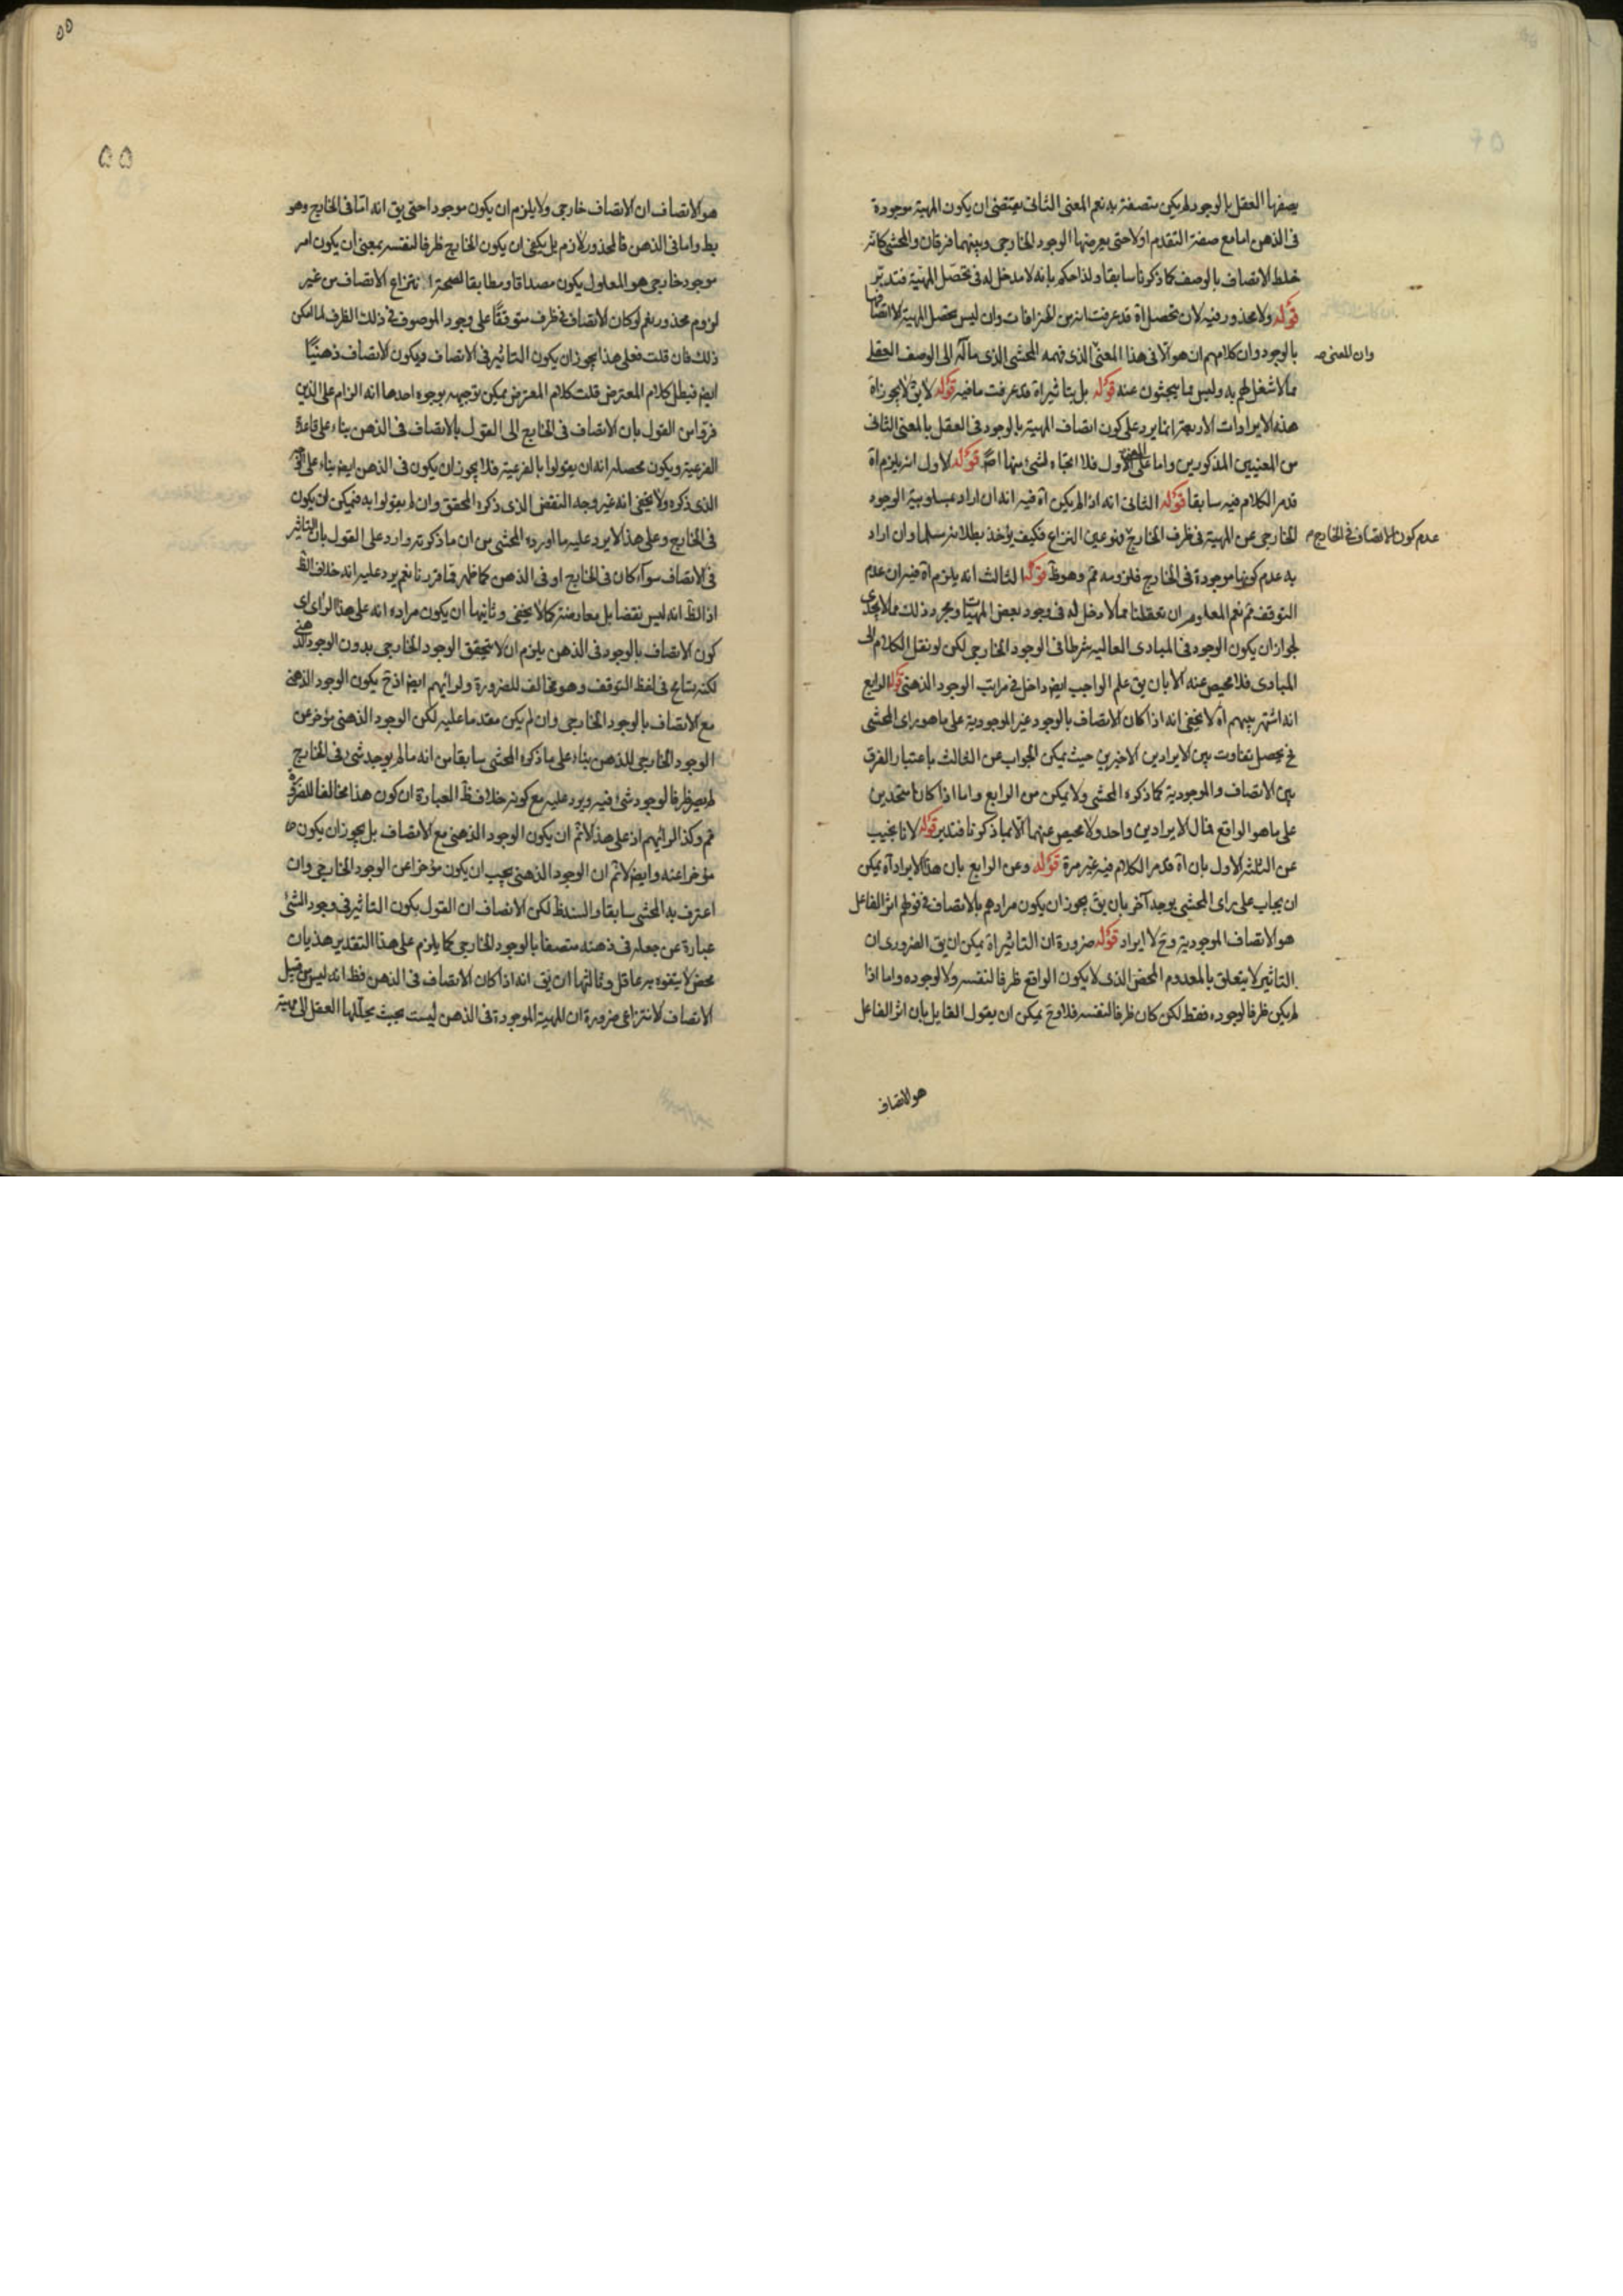 يصفها العقل بالوجود لم يكن متصفة به نعم المعنى الثانى يقتضى ان يكون المهية موجودة
فى الذهن اما مع صفة التقدم اولا حتى يعرضها الوجود الخارجى وبينهما فرقان والمحشى كانه
خلط الاتصاف بالوصف كما ذكرنا سابقا ولذا حكم بانه لا مدخل له فى تحصّل المهية فتدبّر
قوله ولا محذور فيه لان تحصل اه قد عرفت انه من الخرافات وان ليس تحصل المهية الا اتصافها
بالوجود وان كلامهم ان هو الا فى هذا المعنى الذى فهمه المحشى الذى مآله الى الوصف العقلى
وان للمعنى
مما لا شغل لهم به وليس مما يبحثون عنه قوله بل بتاثير اه قد عرفت ما فيه قوله لا يق لا يجوز اه
هذه الايرادات الاربعة انما يرد على كون اتصاف المهية بالوجود فى العقل بالمعنى الثانى
من المعنيين المذكورين واما على المعنى الاول فلا اتجاه لشئ منها اصلا قوله الاول انه يلزم اه
قد مر الكلام فيه سابقا قوله الثانى انه اذا لم يكن اه فيه انه ان اراد بمسلوبية الوجود
الخارجى عن المهية فى ظرف الخارج فهو عين النزاع فكيف يؤخذ بطلانه مسلما وان اراد
عدم كون الاتصاف فى الخارج
به عدم كونها موجودة فى الخارج فلزومه مم وهو ظ قوله الثالث انه يلزم اه فيه ان عدم
التوقف مم نعم المعلوم ان تعقلنا مما لا دخل له فى وجود بعض المهيات ومجرد ذلك مما لا يجدى
لجواز ان يكون الوجود فى المبادى العالية شرطا فى الوجود الخارجى لكن لو نقل الكلام الى
المبادى فلا محيص عنه الا بان يق علم الواجب ايض داخل فى مراتب الوجود الذهنى قوله الرابع
انه اشتهر بينهم اه لا يخفى انه اذا كان الاتصاف بالوجود غير الموجودية على ما هو راى المحشى
فح يحصل تفاوت بين الايرادين الاخيرين حيث يمكن الجواب عن الثالث باعتبار الفرق
بين الاتصاف والموجودية كما ذكره المحشى ولا يمكن من الرابع واما اذا كانا متحدين
على ما هو الواقع فمال الايرادين واحد ولا محيص عنهما الا بما ذكرنا فتدبر قوله لانا نجيب
عن الثلثة الاول بان اه قد مر الكلام فيه غير مرة قوله وعن الرابع بان هذا الايراد اه يمكن
ان يجاب على راى المحشى بوجه آخر بان يق يجوز ان يكون مرادهم بالاتصاف فى قولهم اثر الفاعل
هو الاتصاف الموجودية وح لا ايراد قوله ضرورة ان التاثير اه يمكن ان يق الضرورى ان
التاثير لا يتعلق بالمعدوم المحض الذى لا يكون الواقع ظرفا لنفسه ولا لوجوده واما اذا
لم يكن ظرفا لوجوده فقط لكن كان ظرفا لنفسه فلا وح يمكن ان يقول القايل بان اثر الفاعل
هو الاتصاف
٥٥
٥٥
هو الاتصاف ان الاتصاف خارجى ولا يلزم ان يكون موجودا حتى يق انه اما فى الخارج وهو
بط واما فى الذهن فالمحذور لازم بل يكفى ان يكون الخارج ظرفا لنفسه بمعنى ان يكون امر
موجود خارجى هو المعلول يكون مصداقا ومطابقا لصحة انتزاع الاتصاف من غير
لزوم محذور نعم لو كان الاتصاف فى ظرف متوقفا على وجود الموصوف فى ذلك الظرف لما امكن
ذلك فان قلت فعلى هذا يجوز ان يكون التاثير فى الاتصاف ويكون الاتصاف ذهنيا
ايض فيبطل كلام المعترض قلت كلام المعترض يمكن توجيهه بوجوه احدها انه الزام على الذين
فروا من القول بان الاتصاف فى الخارج الى القول بالاتصاف فى الذهن بناء على قاعدة
الفرعية ويكون محصله انه ان يقولوا بالفرعية فلا يجوز ان يكون فى الذهن ايض بناء على
الذى ذكره ولا يخفى انه غير وجه النقض الذى ذكره المحقق وان لم يقولوا به فيمكن ان يكون
فى الخارج وعلى هذا لا يرد عليه ما اورده المحشى من ان ما ذكرته وارد على القول بان التاثير
فى الاتصاف سواء كان فى الخارج او فى الذهن كما ظهر مما قررنا نعم يرد عليه انه خلاف الظ
اذ الظ انه ليس نقضا بل معارضة كما لا يخفى وثانيها ان يكون مراده انه على هذا الراى اى
كون الاتصاف بالوجود فى الذهن يلزم ان لا يتحقق الوجود الخارجى بدون الوجود الذهنى
لكنه يتامح فى لفظ التوقف وهو مخالف للضرورة ولرائهم ايض اذ ح يكون الوجود الذهنى
مع الاتصاف بالوجود الخارجى وان لم يكن مقدما عليه لكن الوجود الذهنى مؤخر عن
الوجود الخارجى للذهن بناء على ما ذكره المحشى سابقا من انه ما لم يوجد شئ فى الخارج
لم يصر ظرفا لوجود شئ فيه ويرد عليه مع كونه خلاف ظ العبارة ان كون هذا مخالفا للضرورة
مم وكذا لرائهم اذ على هذا لا نم ان يكون الوجود الذهنى مع الاتصاف بل يجوز ان يكون
مؤخرا عنه وايض لا نم ان الوجود الذهنى يجب ان يكون مؤخرا عن الوجود الخارجى وان
اعترف به المحشى سابقا والسند ظ لكن الانصاف ان القول بكون التاثير فى وجود الشئ
عبارة عن جعله فى ذهنه متصفا بالوجود الخارجى كما يلزم على هذا التقدير هذيان
محض لا يتفوه به عاقل وثالثها ان يق انه اذا كان الاتصاف فى الذهن فظ انه ليس من قبيل
الاتصاف الانتزاعى ضرورة ان المهية الموجودة فى الذهن ليست بحيث يحللها العقل الى مهية